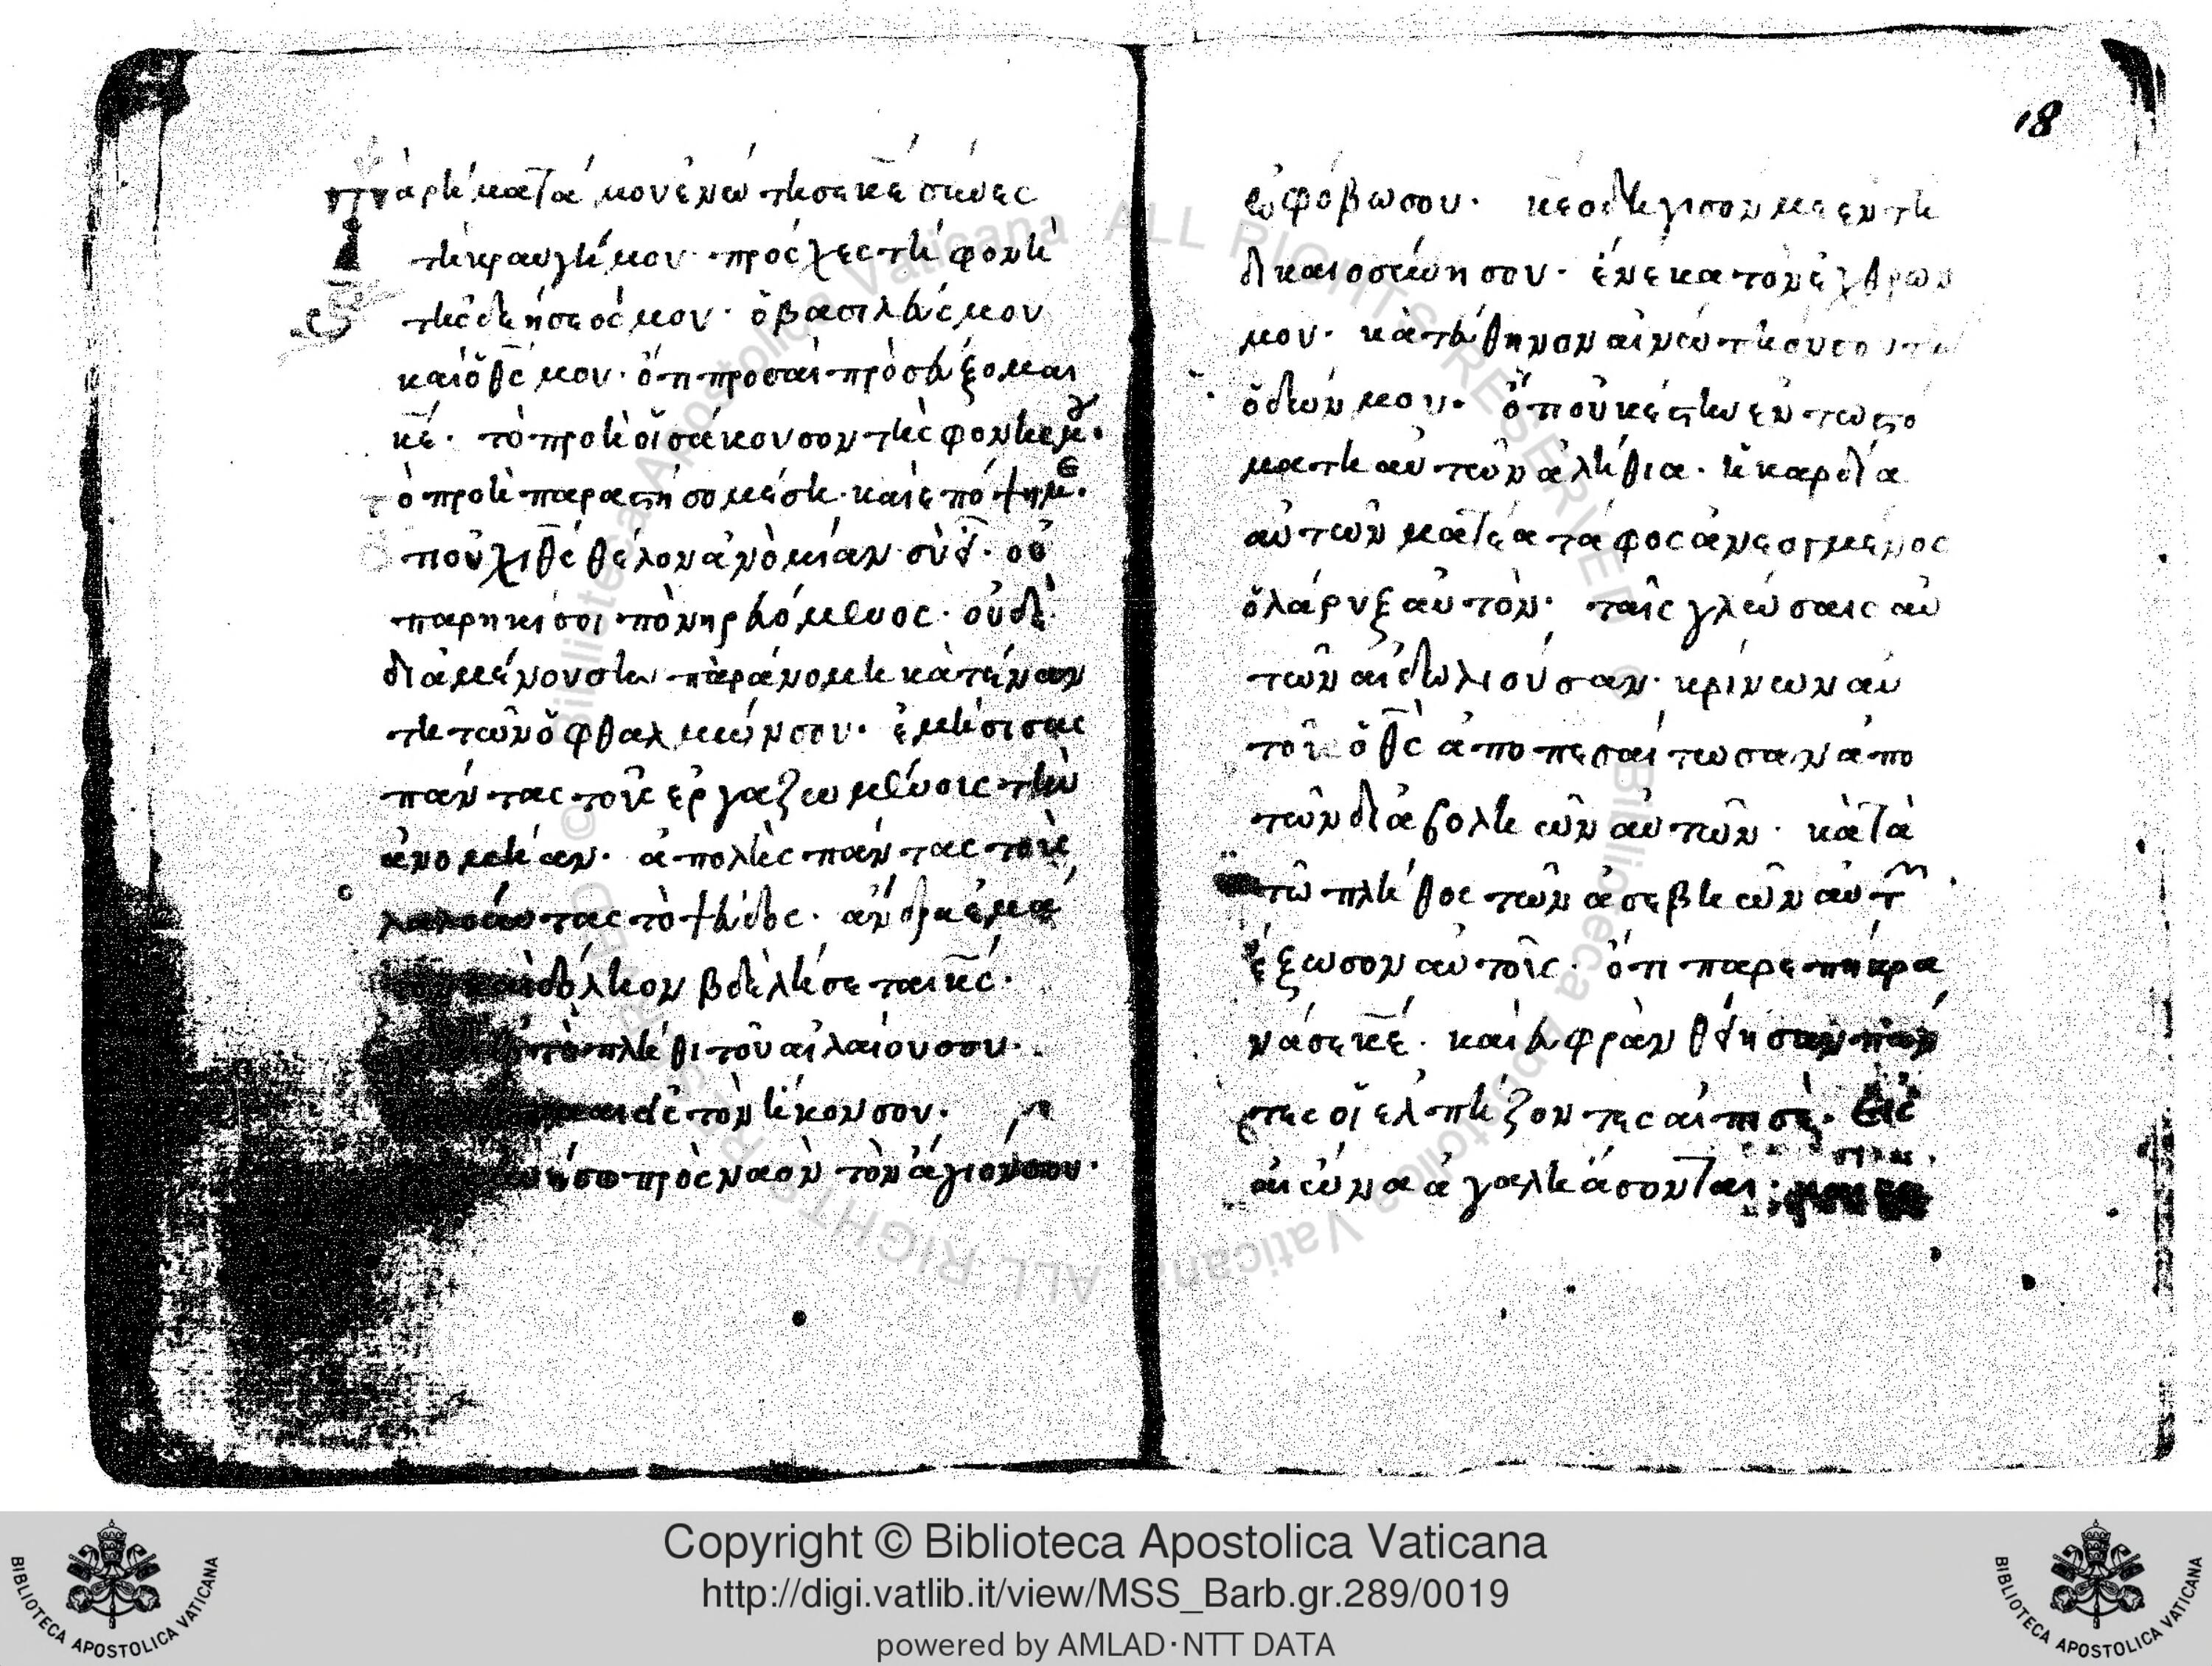 τὰ ρή̓ματα μου ἐνώτησεκε σύνες
τὴ κραυγή μου· πρόσχες τὴ φονὴ
τῆς δεήσεός μου· ὁ βασιλεύς μου
καὶ ὁ θς μου· ὅτι προσαὶ πρὸσεύξομαι
κέ· τὸ προὴ οἰσάκουσον τῆς φονῆς μ.
ὸ προὴ παραστήσομέ ση· καὶ επόψη με.
πουχι θς θέλον ἀνὸμίαν σὺ εἶ· οὐ
παρηκίσοι πὸνηρευόμενος· οὐδὲ
διαμένουσην παράνομη κὰτέναν
τη τῶν ὀφθαλμῶν σου· ἐμήσισας
πάντας τοὺς εργαζωμένοις τὴν
ἀνομήαν· ἀπολὴς πάντας τοὺς
λαλοῦντας τὸ ψεύδος· ἄνδρα ἑμά
καὶ δόλιον βδὲλήσεται κς·
τὸ πλήθι τοῦ αἰλαίους σου·
δὲ τὸν ήκον σου·
πρὸς ναὸν τὸν ἅγιόν σου·
18
ἐν φόβω σου· κε οδήγισον με εν τη
δικαιοσύνη σου· ένεκα τὸν ἐχθρων
μου· κὰτεύθηνον αἰνώτηόν σου τὴν
ὁδών μου· ὅτι ουκέστην εν τω στο
ματη αὐτῶν ἀλήθια· ἡ καρδία
αὐτῶν ματέα τάφος ἀνεογμένος
ὁ λάρυξ αὐτὸν· ταῖς γλώσαις αὐ
τῶν αἰδωλιοῦσαν· κρίνων αὐ
τοὺς ὁ θς ἀποπεσαίτωσαν ἀπο
τῶν διαβολη ῶν αὐτῶν· κὰτὰ
τῶ πλήθος τῶν ἀσεβη ῶν αὐτ
ἔξωσον αὐτοῖς· ὅτι παρεπήκρα
νάσε κέ· καὶ ευφρὰνθήησαν πάν
τες οἱ ελπήζοντες αἰπι σὲ· Εἰς
αἰώνα ἀγαλήάσονται:
Copyright © Biblioteca Apostolica Vaticana
http://digi.vatlib.it/view/MSS_Barb.gr.289/0019
powered by AMLAD·NTT DATA
BIBLIOTECA APOSTOLICA VATICANA
BIBLIOTECA APOSTOLICA VATICANA